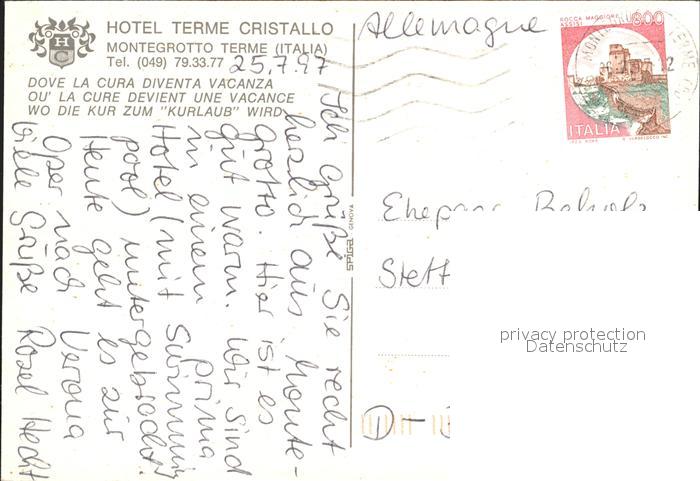 HOTEL TERME CRISTALLO
MONTEGROTTO TERME (ITALIA)
Tel. (049) 79.33.77
25.7.97
DOVE LA CURA DIVENTA VACANZA
OU' LA CURE DEVIENT UNE VACANCE
WO DIE KUR ZUM "KURLAUB" WIRD
Ich grüße Sie recht
herzlich aus Monte-
grotto. Hier ist es
gut warm. Wir sind
in einem prima
Hotel (mit Swimming
pool) untergebracht.
Heute geht es zur
Oper nach Verona
Viele Grüße Rosel Hecht
SPIGA - GENOVA
Allemagne
ROCCA MAGGIORE
ASSISI
800
ITALIA
Ehepaar
Stett
D -
privacy protection
Datenschutz